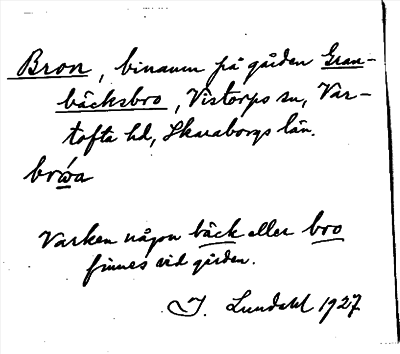 Bron, binamn på gården Gran-
bäcksbro, Vistorps sn, Var-
tofta hd, Skaraborgs län.
Varken någon bäck eller bro
finnes vid gården.
J. Lundahl 1927